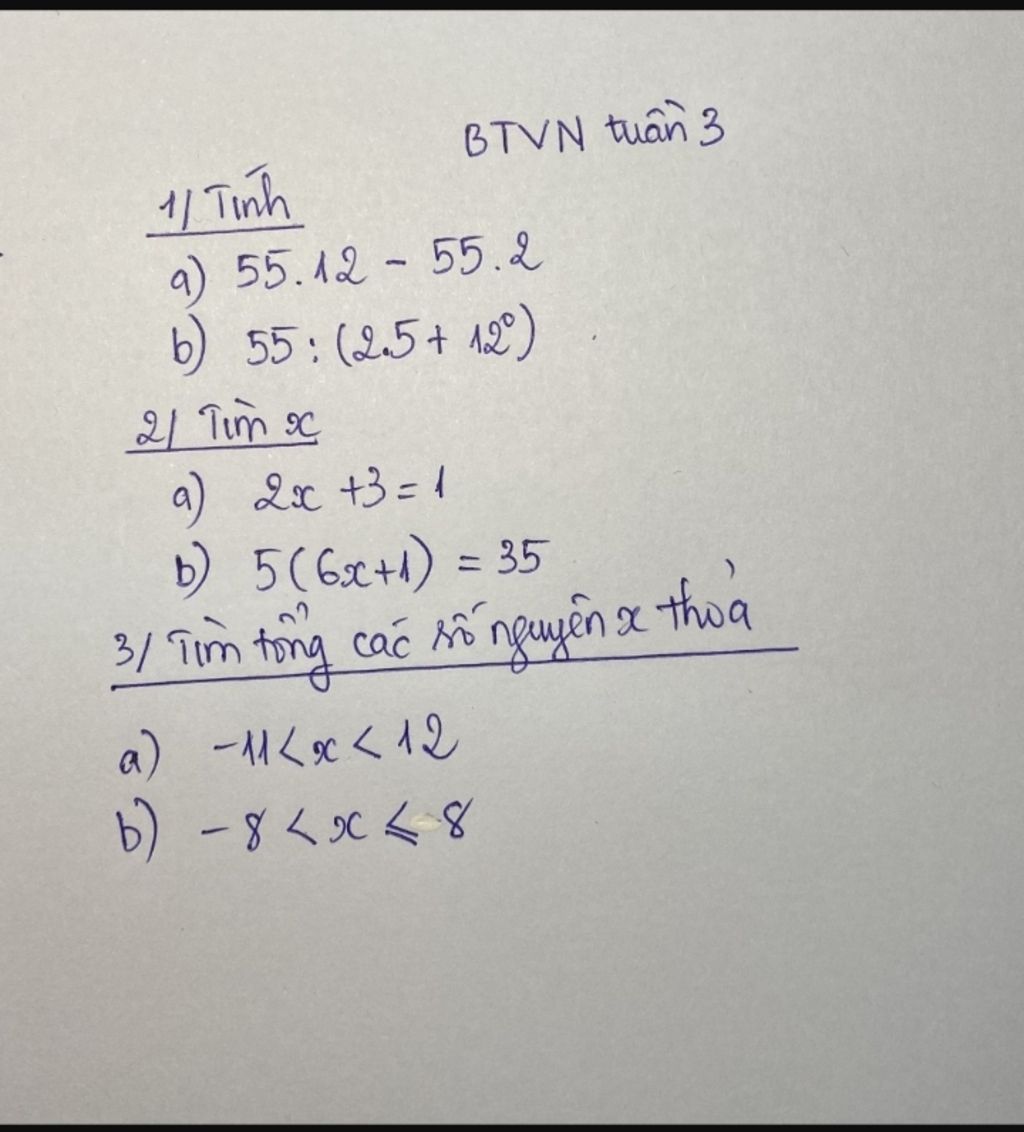 BTVN tuần 3
1/ Tính
a) 55.12 - 55.2
b) 55 : (2.5 + 12⁰)
2/ Tìm x
a) 2x + 3 = 1
b) 5(6x+1) = 35
3/ Tìm tổng các số nguyên x thoả
a) -11 < x < 12
b) -8 < x ⩽ 8